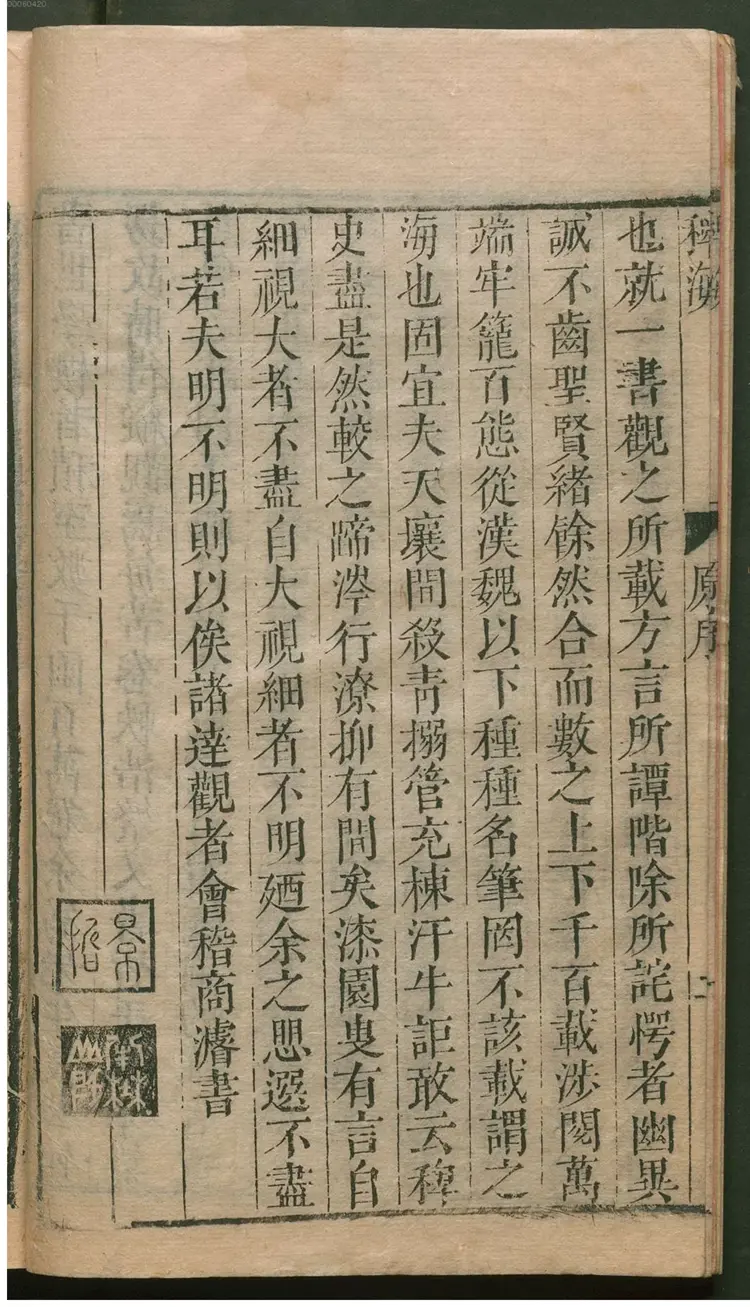 00060420
稗海
原序
也就一書觀之所載方言所譚階除所詫愕者幽異
誠不齒聖賢緒餘然合而數之上下千百載涉閱萬
端牢籠百態從漢魏以下種種名筆罔不該載謂之
海也固宜夫天壤間殺青搦管充棟汗牛詎敢云稗
史盡是然較之蹄涔行潦抑有間矣漆園叟有言自
細視大者不盡自大視細者不明廼余之思不盡
耳若夫明不明則以俟諸達觀者會稽商濬書
景哲